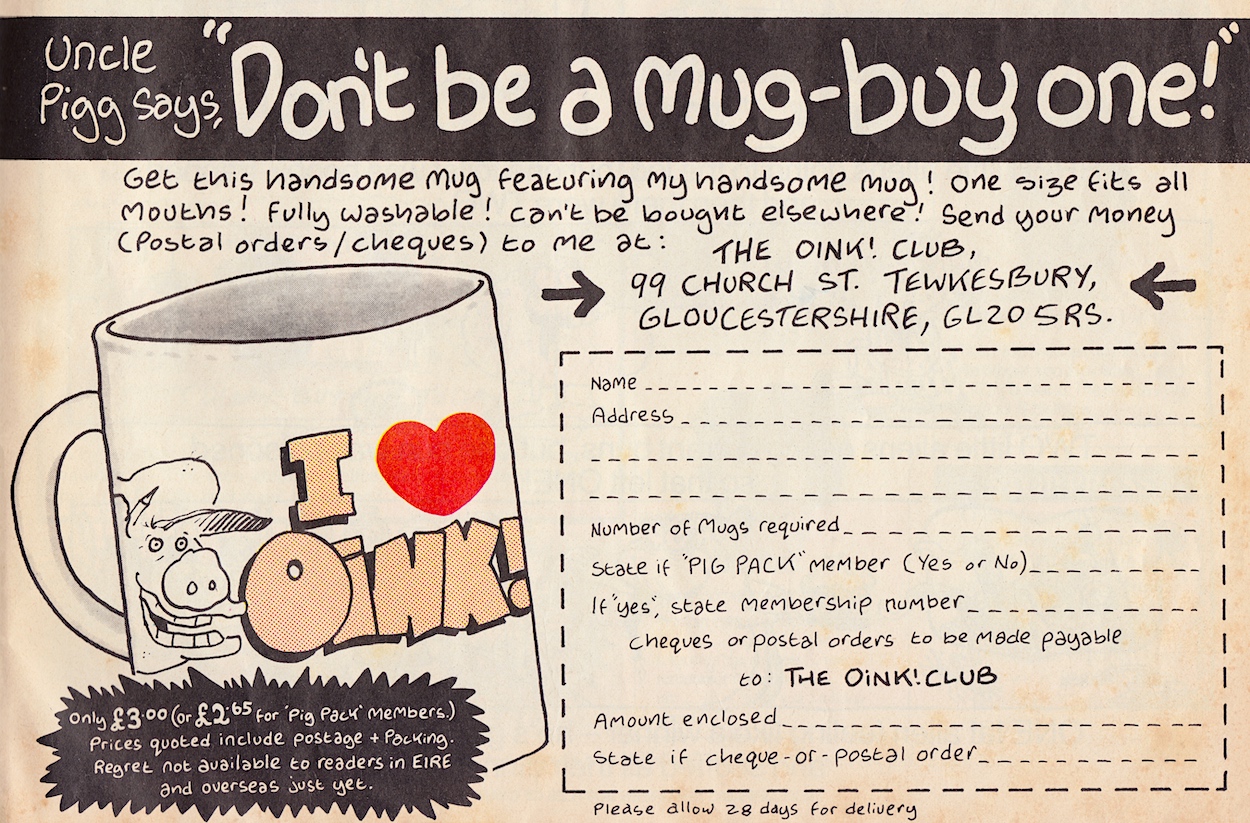 Uncle
Pigg says,
"Don't be a Mug-buy one!"
Get this handsome Mug featuring my handsome mug! One size fits all
Mouths! Fully washable! Can't be bought elsewhere! Send your Money
(Postal orders/cheques) to me at:
THE OINK! CLUB,
99 CHURCH ST. TEWKESBURY,
GLOUCESTERSHIRE, GL20 5RS.
I ♥
OiNK!
Name
Address
Number of Mugs required
State if "PIG PACK" member (Yes or No)
If "yes", state membership number
Cheques or postal orders to be made payable
to: THE OiNK! CLUB
Amount enclosed
State if cheque-or-postal order
Only £3.00 (or £2.65 for 'Pig Pack' members.)
Prices quoted include postage + Packing.
Regret not available to readers in EIRE
and overseas just yet.
Please allow 28 days for delivery